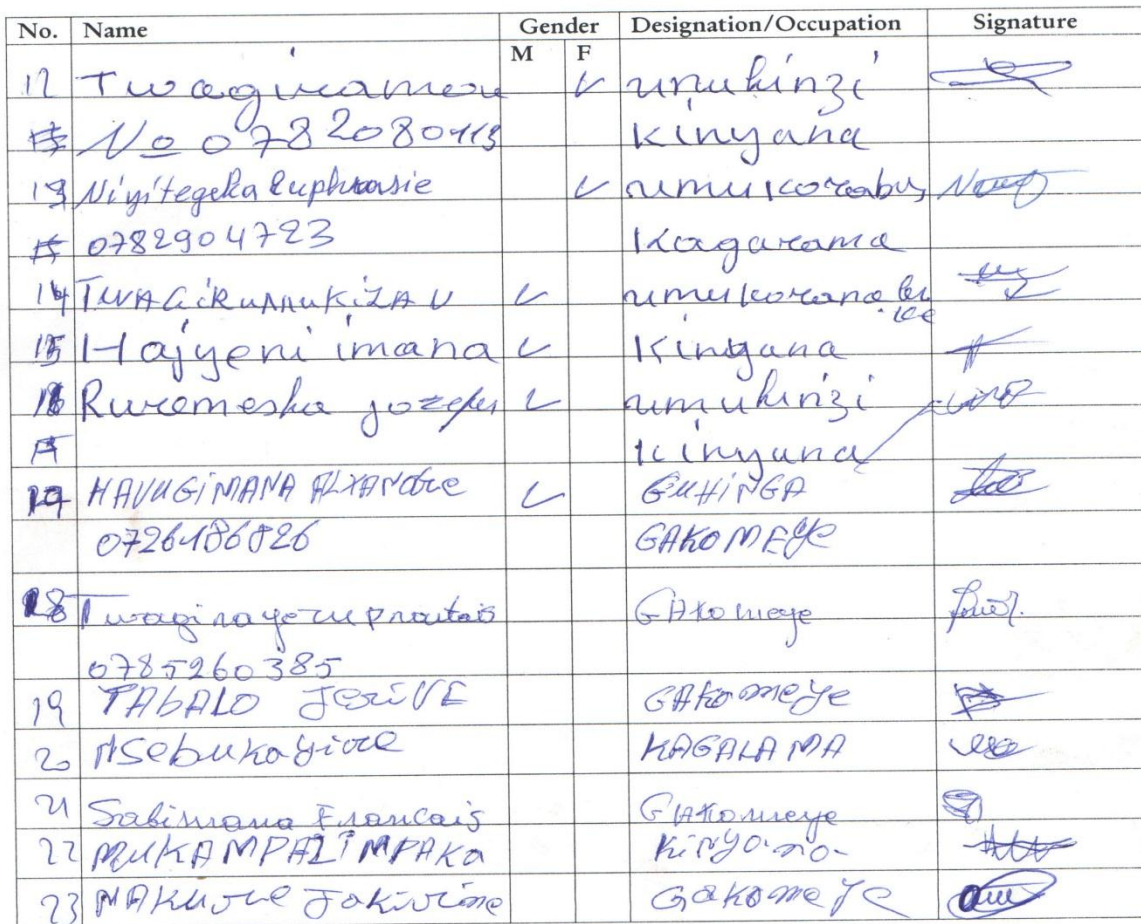 No. Name Gender Designation/Occupation Signature
M F
12 Twagiramar umuhinzi
No 0782080113 Kinyana
13 Niyitegeka Euphrasie umukorabu
0782904723 Kagarama
14 TWAGiRUMUKiZA V umukorana
15 Hajyeni imana Kinyana
16 Ruremesha jozefu umuhinzi
Kinyana
17 HAVUGiMANA ALXANdre GUHiNGA
0726186826 GAKOMEYe
18 Twagirayezu protais GAkomeye
0785260385
19 TABALO JeriVE GAKomeye
20 NSebukayire KAGALAMA
21 Sabimana Francais GAKomeye
22 MUKAMPALiMPAKa KiNyana
23 NAKure Jakirine Gakomeye